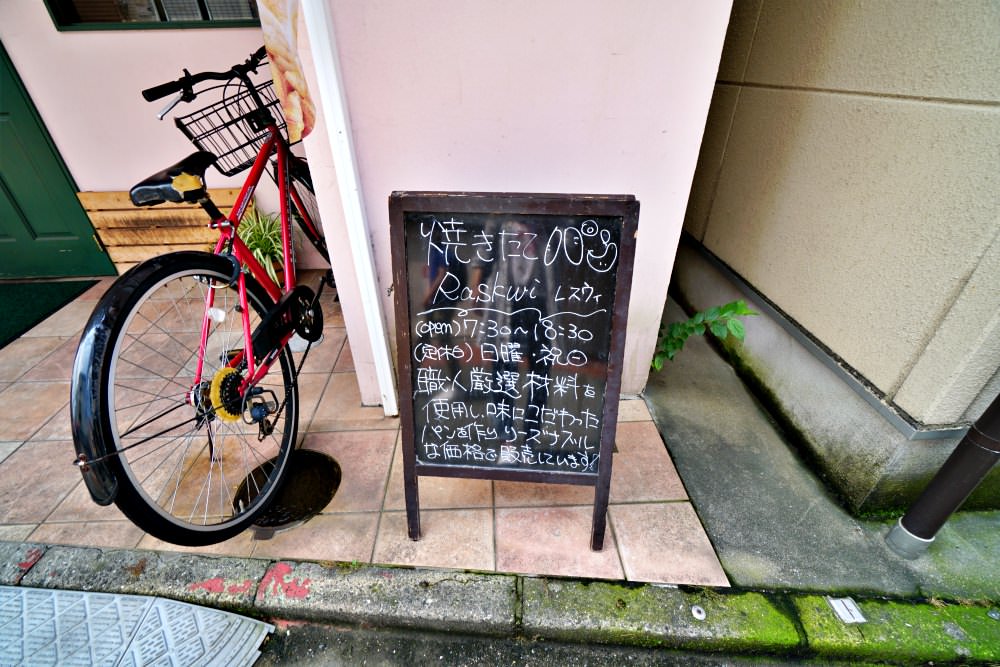 焼きたてパン
Raskwi レスウィ
(open) 7:30～18:30
(定休日) 日曜・祝日
職人厳選材料を
使用し、味にこだわった
パンを作りリーズナブル
な価格で販売しています!